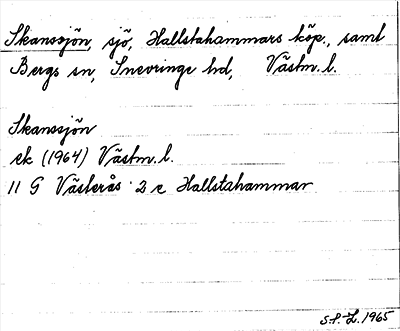 Skanssjön, sjö, Hallstahammars köp., samt
Bergs sn, Snevringe hd, Västm. l.
Skanssjön
ek (1964) Västm. l.
11 G Västerås 2 e Hallstahammar
S.F.L. 1965